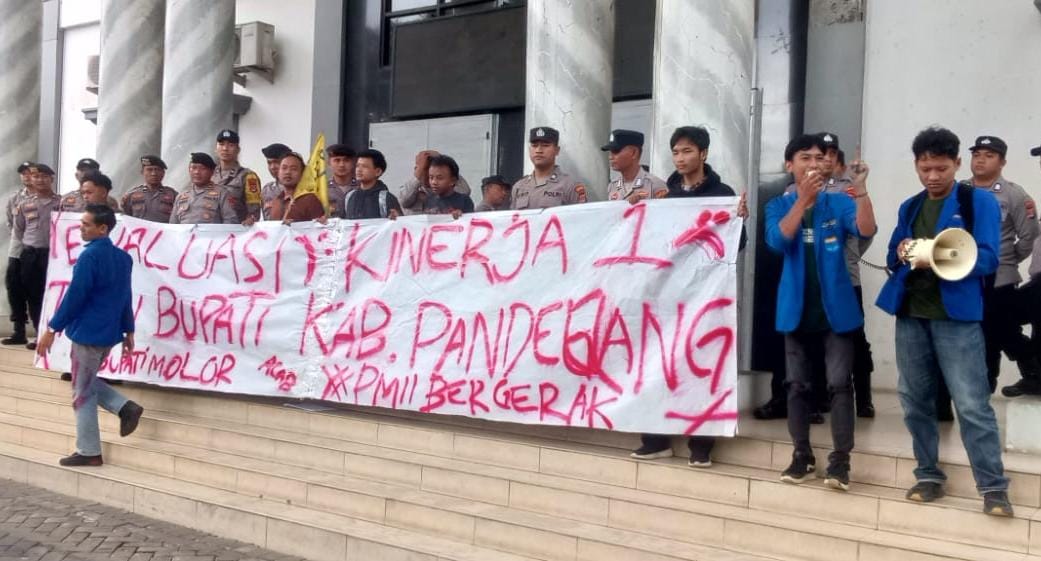 EVALUASI KINERJA 1
BUPATI KAB. PANDEGLANG
BUPATI MOLOR ACAB PMII BERGERAK
POLRI